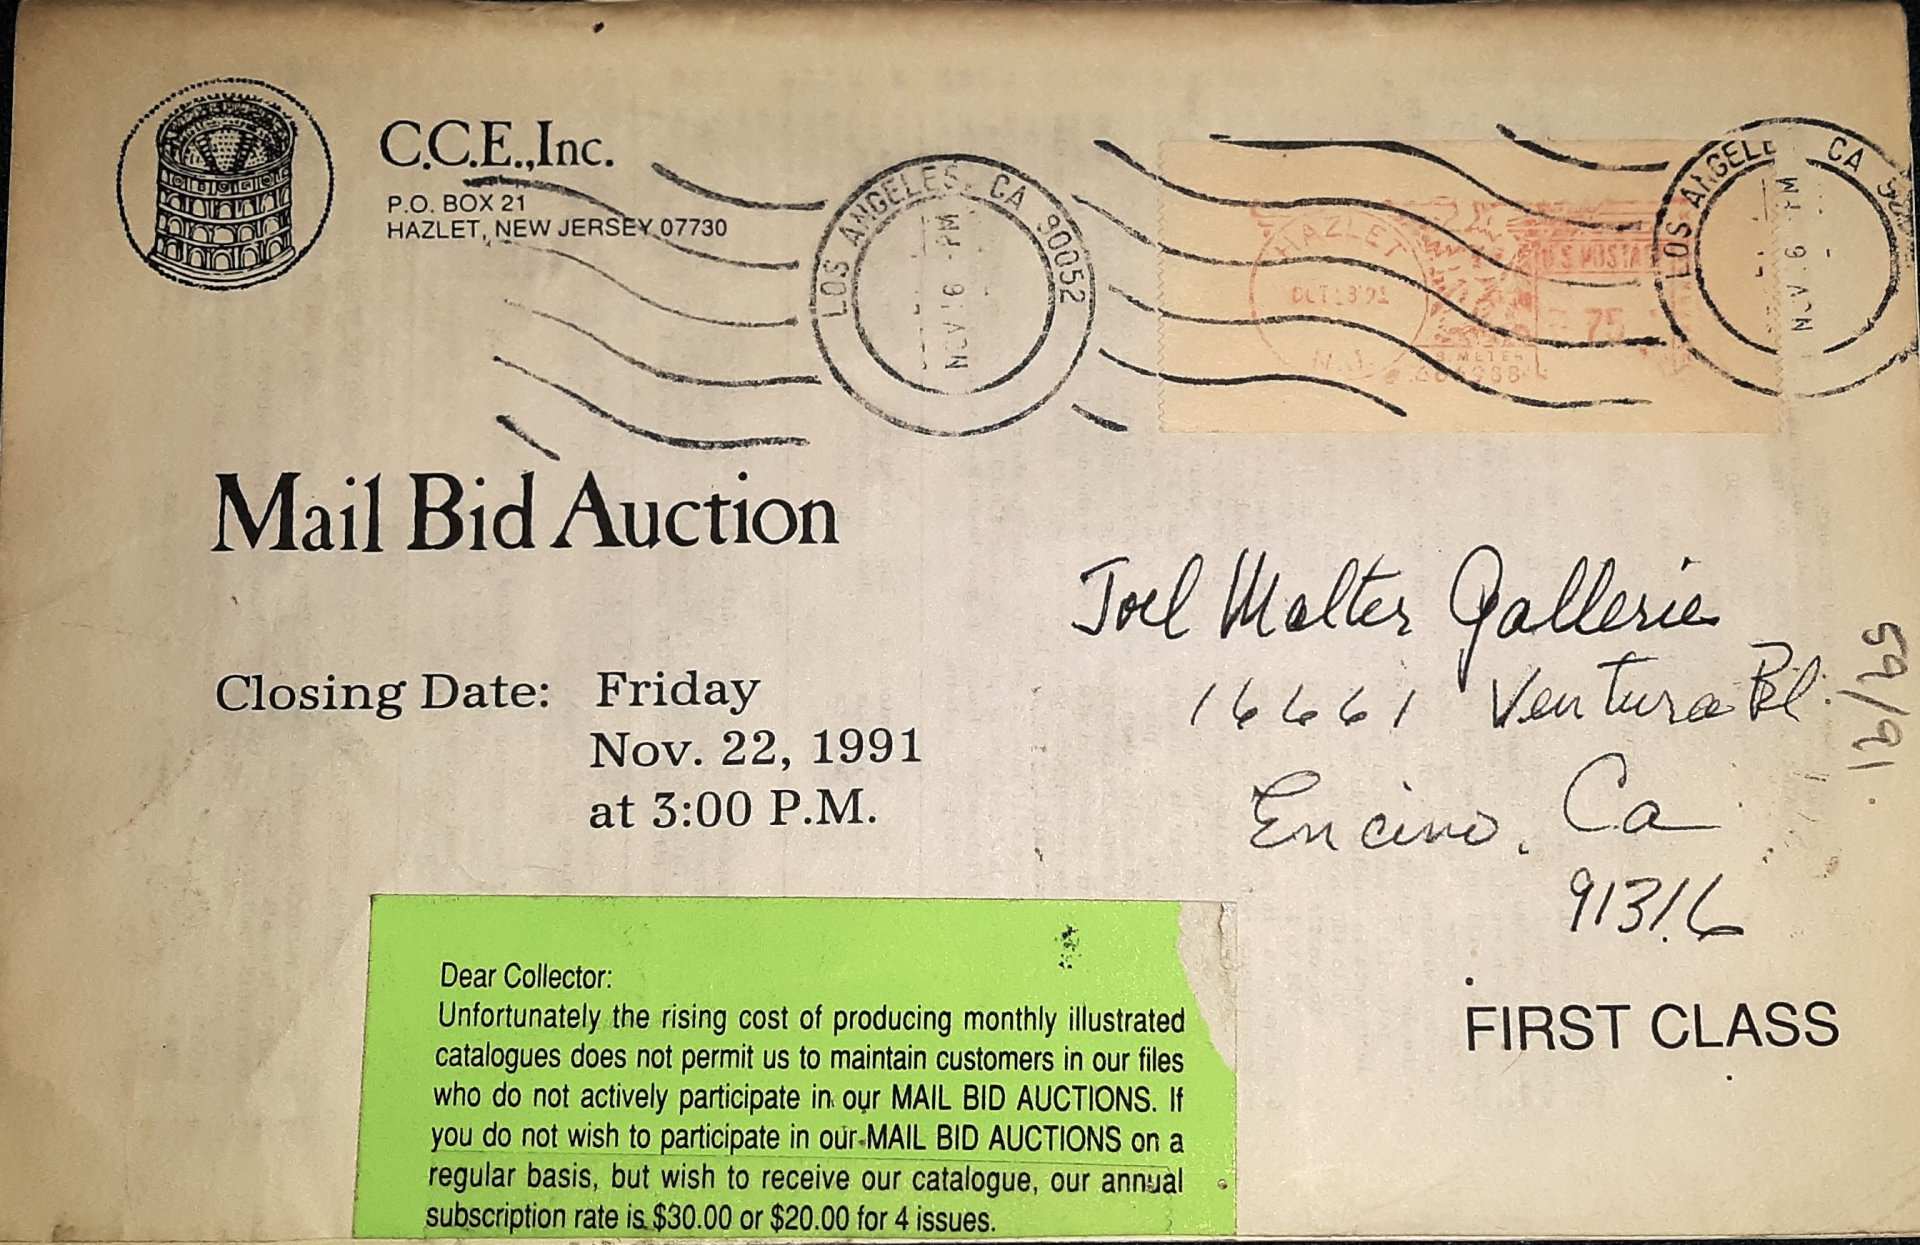 C.C.E.,Inc.
P.O. BOX 21
HAZLET, NEW JERSEY 07730
LOS ANGELES, CA 90052
NOV 16 PM
HAZLET
OCT 18'91
N.J.
U.S. POSTA
75
B. METER
LOS ANGELE CA
NOV 16 PM
Mail Bid Auction
Closing Date: Friday
Nov. 22, 1991
at 3:00 P.M.
Joel Malter Gallerie
16661 Ventura Bl.
Encino, Ca
91316
59/91
FIRST CLASS
Dear Collector:
Unfortunately the rising cost of producing monthly illustrated
catalogues does not permit us to maintain customers in our files
who do not actively participate in our MAIL BID AUCTIONS. If
you do not wish to participate in our MAIL BID AUCTIONS on a
regular basis, but wish to receive our catalogue, our annual
subscription rate is $30.00 or $20.00 for 4 issues.